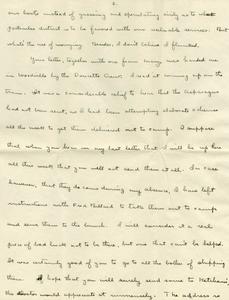 2.
our boats instead of guessing and speculating only as to what
particular district is to be favored with our valuable services. But
what's the use of worrying. Besides, I don't believe I flunked.
Your letter, together with one from Mary was handed me
in by the
train. It was a considerable relief to hear that the Asparagus
had not been sent, as I had been attempting elaborate schemes
all the week to get them delivered out to camp. I suppose
that when you saw in my last letter that I will be up here
all this week that you will not send them at all. In case
however, that they do come during my absence, I have left
instructions with Fred to take them out to camp
and serve them to the bunch. I will consider it a real
piece of bad luck not to be there, but one that can't be helped.
It was certainly good of you to go to all the bother of shipping
them. I hope that you will surely send some to
the doctor would appreciate it immensely. The address is